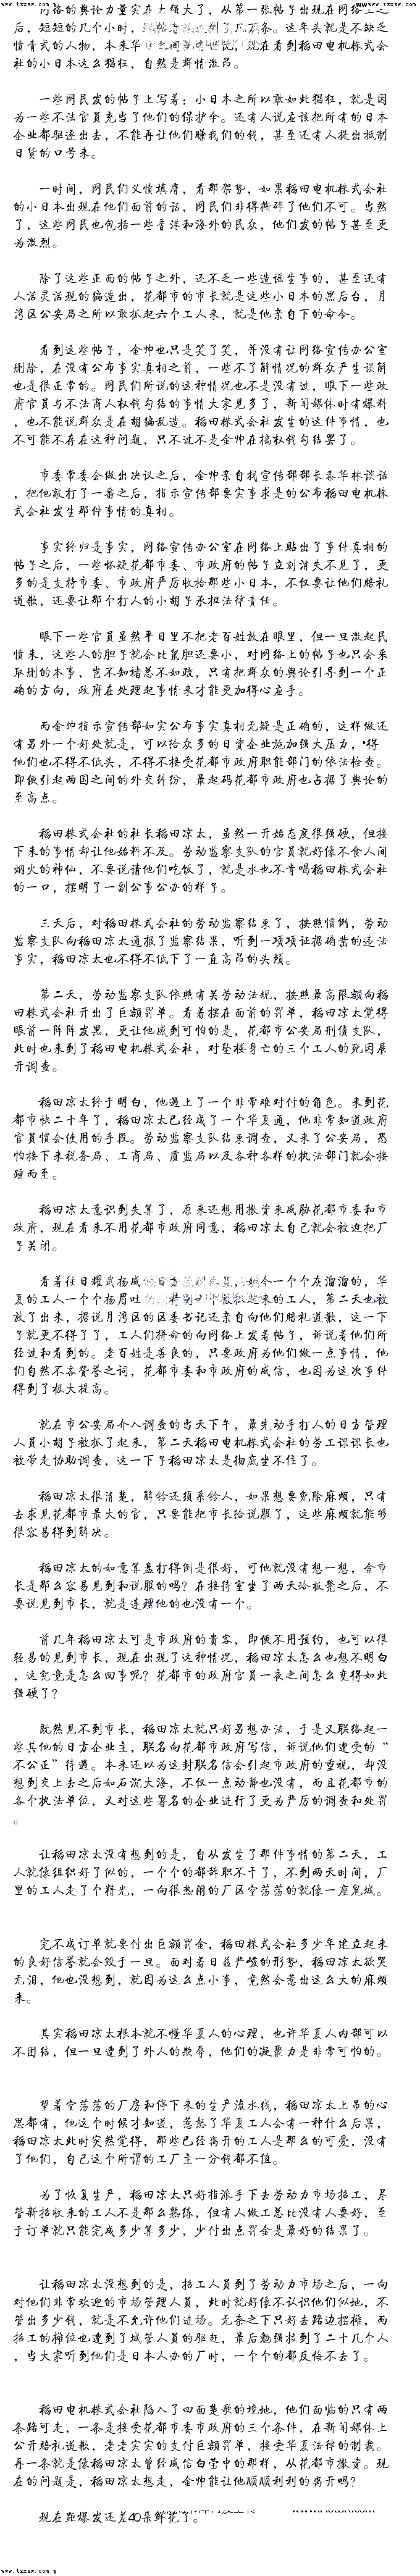 www.tszsw.com www.tszsw.com
网络的舆论力量实在太强大了，从第一张帖子出现在网络上之
后，短短的几个小时，
愤青式的人物，本来华
社的小日本这么猖狂，自然是群情激昂。
一些网民发的帖子上写着：小日本之所以敢如此猖狂，就是因
为一些不法官员充当了他们的保护伞。还有人说应该把所有的日本
企业都驱逐出去，不能再让他们赚我们的钱，甚至还有人提出抵制
日货的口号来。
一时间，网民们义愤填膺，看那架势，如果稻田电机株式会社
的小日本出现在他们面前的话，网民们非得撕碎了他们不可。当然
了，这些网民也包括一些香港和海外的民众，他们发的帖子甚至更
为激烈。
除了这些正面的帖子之外，还不乏一些造谣生事的，甚至还有
人活灵活现的编造出，花都市的市长就是这些小日本的黑后台，月
湾区公安局之所以敢抓起六个工人来，就是他亲自下的命令。
看到这些帖子，金帅也只是笑了笑，并没有让网络宣传办公室
删除，在没有公布事实真相之前，一些不了解情况的群众产生误解
也是很正常的。网民们所说的这种情况也不是没有过，眼下一些政
府官员与不法商人权钱勾结的事情大家见多了，新闻媒体时有爆料
，也不能说群众是在胡编乱造。稻田株式会社发生的这件事情，也
不可能不存在这种问题，只不过不是金帅在搞权钱勾结罢了。
市委常委会做出决议之后，金帅亲自找宣传部部长秦华林谈话
，把他敲打了一番之后，指示宣传部要实事求是的公布稻田电机株
式会社发生那件事情的真相。
事实终归是事实，网络宣传办公室在网络上贴出了事件真相的
帖子之后，一些怀疑花都市委、市政府的帖子立刻消失不见了，更
多的是支持市委、市政府严厉收拾那些小日本，不仅要让他们赔礼
道歉，还要让那个打人的小胡子承担法律责任。
眼下一些官员虽然平日里不把老百姓放在眼里，但一旦激起民
愤来，这些人的胆子就会比鼠胆还要小，对网络上的帖子也只会采
取删的本事，岂不知堵总不如疏，只有把群众的舆论引导到一个正
确的方向，政府在处理起事情来才能更加得心应手。
而金帅指示宣传部如实公布事实真相无疑是正确的，这样做还
有另外一个好处就是，可以给众多的日资企业施加强大压力，得
他们也不得不低头，不得不接受花都市政府职能部门的依法检查。
即便引起两国之间的外交纠纷，最起码花都市政府也占据了舆论的
至高点。
稻田株式会社的社长稻田凉太，虽然一开始态度很强硬，但接
下来的事情却让他始料不及。劳动监察支队的官员就好像不食人间
烟火的神仙，不要说请他们吃饭了，就是水也不肯喝稻田株式会社
的一口，摆明了一副公事公办的样子。
三天后，对稻田株式会社的劳动监察结束了，按照惯例，劳动
监察支队向稻田凉太通报了监察结果，听到一项项证据确凿的违法
事实，稻田凉太也不得不低下了一直高昂的头颅。
第二天，劳动监察支队依照有关劳动法规，按照最高限额向稻
田株式会社开出了巨额罚单。看着摆在面前的罚单，稻田凉太觉得
眼前一阵阵发黑，更让他感到可怕的是，花都市公安局刑侦支队，
此时也来到了稻田电机株式会社，对坠楼身亡的三个工人的死因展
开调查。
稻田凉太终于明白，他遇上了一个非常难对付的角色。来到花
都市快二十年了，稻田凉太已经成了一个华夏通，他非常知道政府
官员惯会使用的手段。劳动监察支队结束调查，又来了公安局，恐
怕接下来税务局、工商局、质监局以及各种各样的执法部门就会接
踵而至。
稻田凉太意识到失算了，原来还想用撤资来威胁花都市委和市
政府，现在看来不用花都市政府同意，稻田凉太自己就会被迫把厂
子关闭。
看着往日耀武扬威
夏的工人一个个扬眉吐
放了出来，据说月湾区的区委书记还亲自向他们赔礼道歉，这一下
子就更不得了了，工人们拼命的向网络上发着帖子，诉说着他们所
经过和看到的。老百姓是善良的，只要政府为他们做一点事情，他
们自然不吝赞誉之词，花都市委和市政府的威信，也因为这次事件
得到了极大提高。
就在市公安局介入调查的当天下午，最先动手打人的日方管理
人员小胡子被抓了起来，第二天稻田电机株式会社的劳工课课长也
被带走协助调查，这一下子稻田凉太是彻底坐不住了。
稻田凉太很清楚，解铃还须系铃人，如果想要免除麻烦，只有
去求见花都市最大的官，只要能把市长给说服了，这些麻烦就能够
很容易得到解决。
稻田凉太的如意算盘打得倒是很好，可他就没有想一想，金市
长是那么容易见到和说服的吗？在接待室坐了两天冷板凳之后，不
要说见到市长，就是连理他的也没有一个。
前几年稻田凉太可是市政府的贵客，即便不用预约，也可以很
轻易的见到市长，现在出现了这种情况，稻田凉太怎么也想不明白
，这究竟是怎么回事呢？花都市的政府官员一夜之间怎么变得如此
强硬了？
既然见不到市长，稻田凉太就只好另想办法，于是又联络起一
些其他的日方企业主，联名向花都市政府写信，诉说他们遭受的“
不公正”待遇。本来还以为这封联名信会引起市政府的重视，却没
想到交上去之后如石沉大海，不仅一点动静也没有，而且花都市的
各个执法单位，又对这些署名的企业进行了更为严厉的调查和处罚
。
让稻田凉太没有想到的是，自从发生了那件事情的第二天，工
人就像组织好了似的，一个个的都辞职不干了，不到两天时间，厂
里的工人走了个精光，一向很热闹的厂区空荡荡的就像一座鬼城。
完不成订单就要付出巨额罚金，稻田株式会社多少年建立起来
的良好信誉就会毁于一旦。面对着日益严峻的形势，稻田凉太欲哭
无泪，他也没想到，就因为这么点小事，竟然会惹出这么大的麻烦
来。
其实稻田凉太根本就不懂华夏人的心理，也许华夏人内部可以
不团结，但一旦遭到了外人的欺辱，他们的凝聚力是非常可怕的。
望着空荡荡的厂房和停下来的生产流水线，稻田凉太上吊的心
思都有，他这个时候才知道，惹怒了华夏工人会有一种什么后果，
稻田凉太此时突然觉得，那些已经离开的工人是那么的可爱，没有
了他们，自己这个所谓的工厂主一分钱都不值。
为了恢复生产，稻田凉太只好指派手下去劳动力市场招工，尽
管新招收来的工人不是那么熟练，但有人做工总比没有人要好，至
于订单就只能完成多少算多少，少付出点罚金是最好的结果了。
让稻田凉太没想到的是，招工人员到了劳动力市场之后，一向
对他们非常欢迎的市场管理人员，此时就好像不认识他们似地，不
管出多少钱，就是不允许他们进场。无奈之下只好去路边摆摊，而
招工的摊位也遭到了城管人员的驱赶，最后勉强拉到了二十几个人
，当大家听到他们是日本人办的厂时，一个个的都反悔不去了。
稻田电机株式会社陷入了四面楚歌的境地，他们面临的只有两
条路可走，一条是接受花都市委市政府的三个条件，在新闻媒体上
公开赔礼道歉，老老实实的支付巨额罚单，接受华夏法律的制裁。
再一条就是像稻田凉太曾经威信白莹中的那样，从花都市撤资。现
在的问题是，稻田凉太想走，金帅能让他顺顺利利的离开吗？
现在距爆发还差40朵鲜花了。
www.tszsw.com